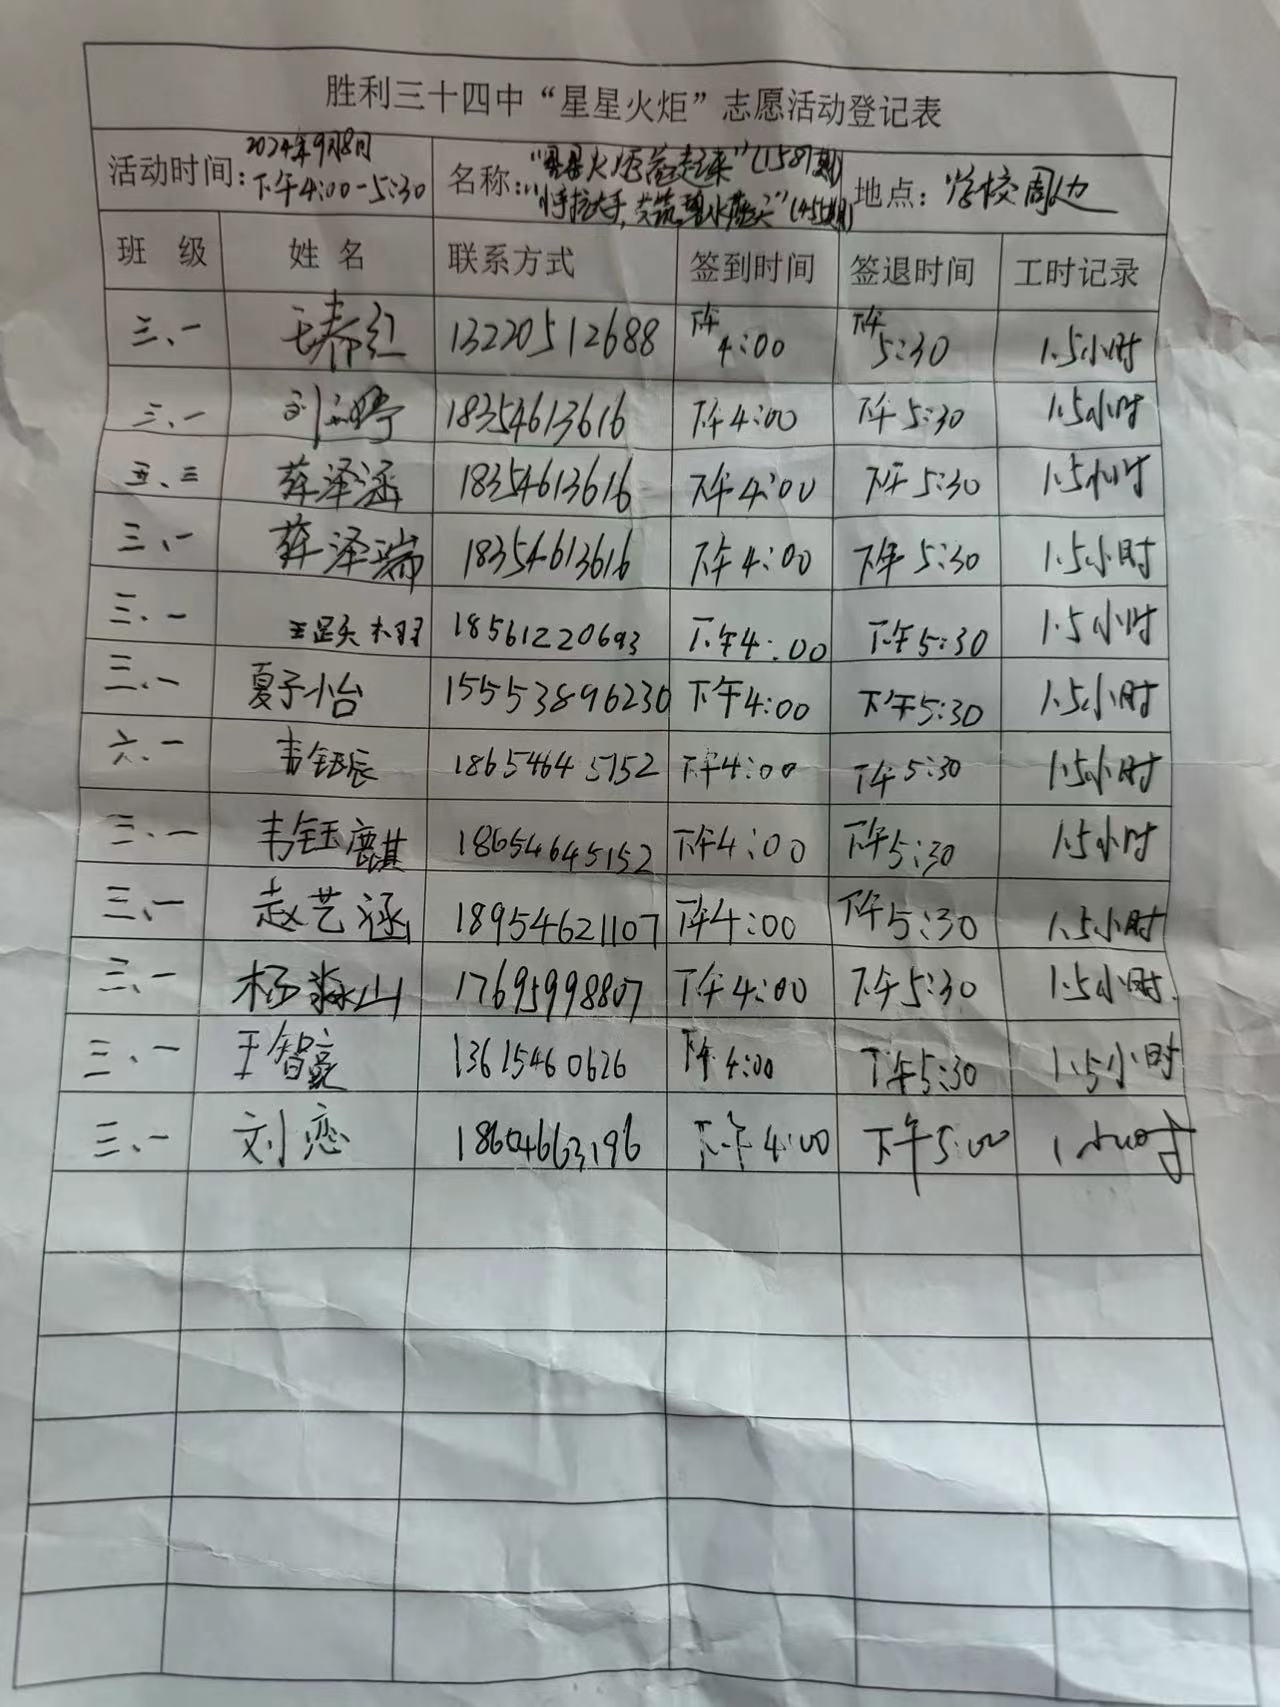 胜利三十四中“星星火炬”志愿活动登记表
活动时间: 2024年9月8日 下午4:00-5:30 名称: “星星火炬益起来”(158期) “小手拉大手,共筑碧水蓝天”(45期) 地点: 学校周边
班 级 姓 名 联系方式 签到时间 签退时间 工时记录
三、一 王春红 13220512688 下午4:00 下午5:30 1.5小时
三、一 刘 18354613616 下午4:00 下午5:30 1.5小时
五、三 薛泽涵 18354613616 下午4:00 下午5:30 1.5小时
三、一 薛泽瑞 18354613616 下午4:00 下午5:30 1.5小时
三、一 王 18561220693 下午4:00 下午5:30 1.5小时
三、一 夏子怡 15553896230 下午4:00 下午5:30 1.5小时
六、一 韦钰辰 18654645152 下午4:00 下午5:30 1.5小时
三、一 韦钰麒 18654645152 下午4:00 下午5:30 1.5小时
三、一 赵艺涵 18954621107 下午4:00 下午5:30 1.5小时
三、一 杨淼山 17695998807 下午4:00 下午5:30 1.5小时
三、一 王智 13615460626 下午4:00 下午5:30 1.5小时
三、一 刘恋 18604663196 下午4:00 下午5:00 1小时